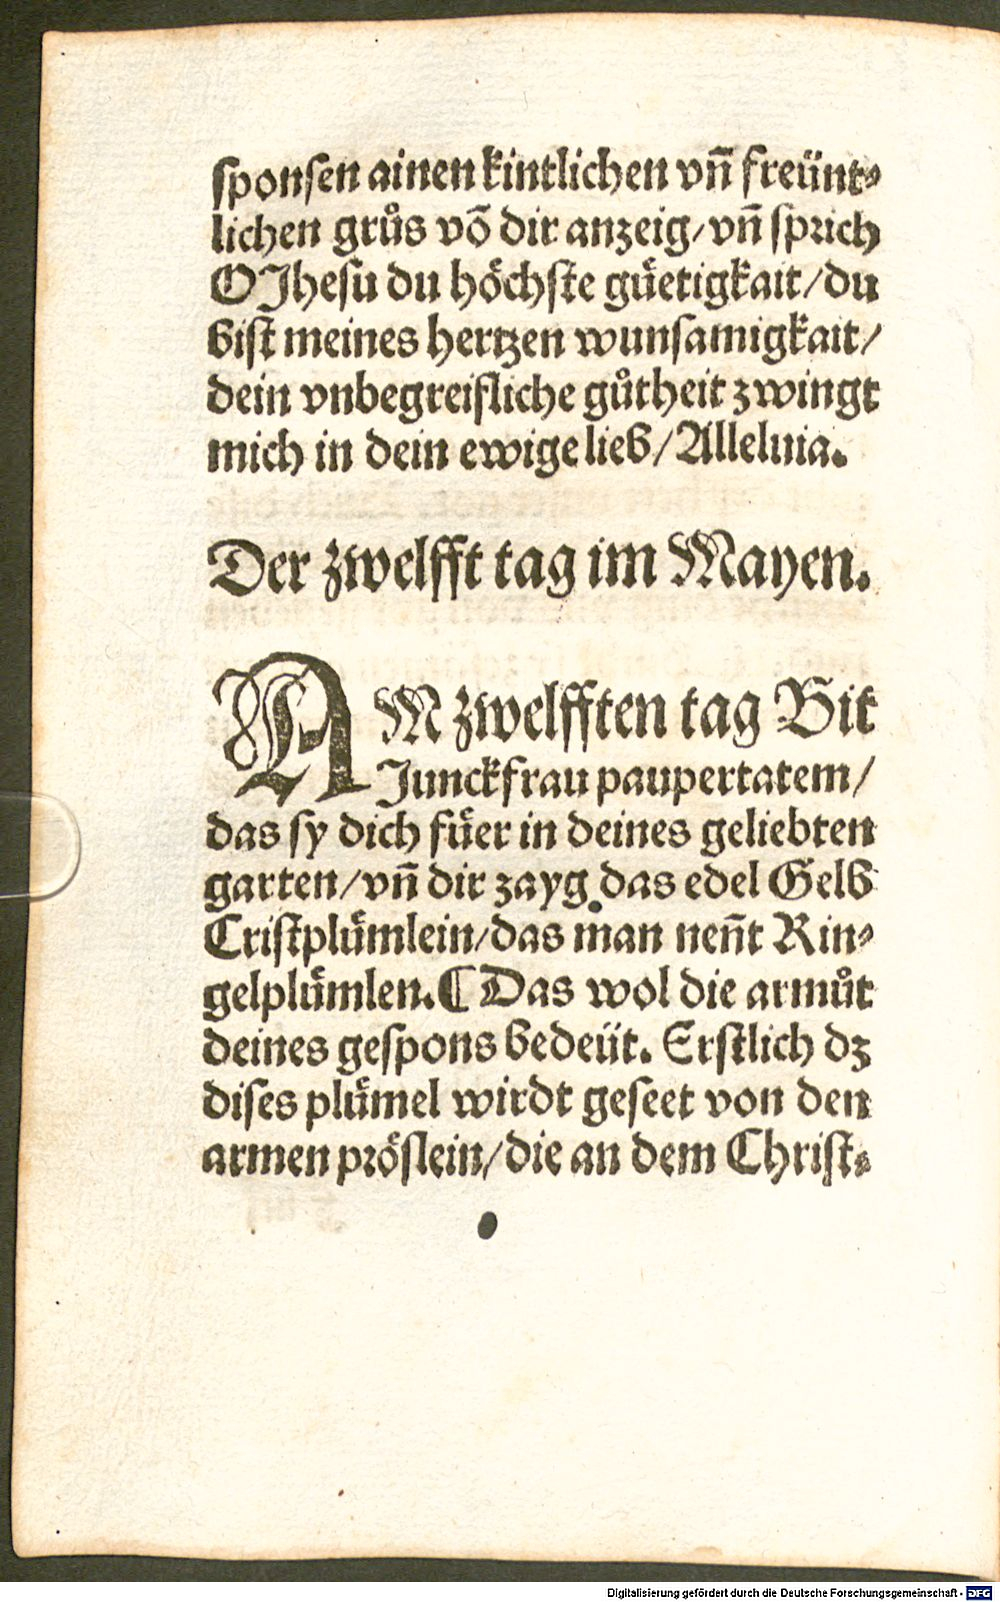 sponsen ainen kintlichen vñ freünt⸗
lichen grůs võ dir anzeig/vñ sprich
O Jhesu du hoͤchste guͤetigkait/du
bist meines hertzen wunsamigkait/
dein vnbegreifliche gůtheit zwingt
mich in dein ewige lieb/Alleluia.
Der zwelfft tag im Mayen.
AM zwelfften tag Bit
Junckfrau paupertatem/
das sy dich fuͤer in deines geliebten
garten/vñ dir zayg das edel Gelb
Cristpluͤmlein/das man neñt Rin⸗
gelpluͤmlen. ¶ Das wol die armůt
deines gespons bedeüt. Erstlich dz
dises pluͤmel wirdt geseet von den
armen proͤslein/die an dem Christ⸗
Digitalisierung gefördert durch die Deutsche Forschungsgemeinschaft - DFG